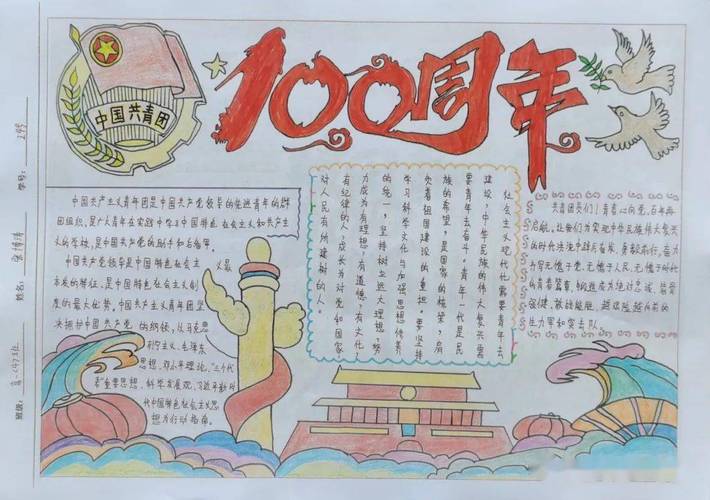 中国共青团
100周年
学号:
姓名:
班级:
中国共产主义青年团是中国共产党领导的先进青年的群
团组织,是广大青年在实践中学习中国特色社会主义和共产主
义的学校,是中国共产党的助手和后备军。
中国共产党领导是中国特色社会主义最
本质的特征,是中国特色社会主义制
度的最大优势。中国共产主义青年团坚
决拥护中国共产党的纲领,以马克思
列宁主义、毛泽东
思想、邓小平理论、“三个代
表”重要思想、科学发展观、习近平新时
代中国特色社会主义思
想为行动指南。
社会主义现代化需要青年去
建设,中华民族的伟大复兴需
要青年去奋斗。青年一代是民
族的希望,是国家的栋梁,肩
负着祖国建设的重担。要坚持
学习科学文化与加强思想修养
的统一,坚持树立远大理想,努
力成为有理想,有道德,有文化,
有纪律的人,成长为对党和国家
对人民有所建树的人。
共青团员们!青春心向党,百年再
启航,让我们为实现中华民族伟大复兴
的时代洪流中踔厉奋发、勇毅前行,奋力
书写无愧于党、无愧于人民、无愧于时代
的青春篇章,锻造成为绝对忠诚、
强硬、敢战能胜、
生力军和突击队。